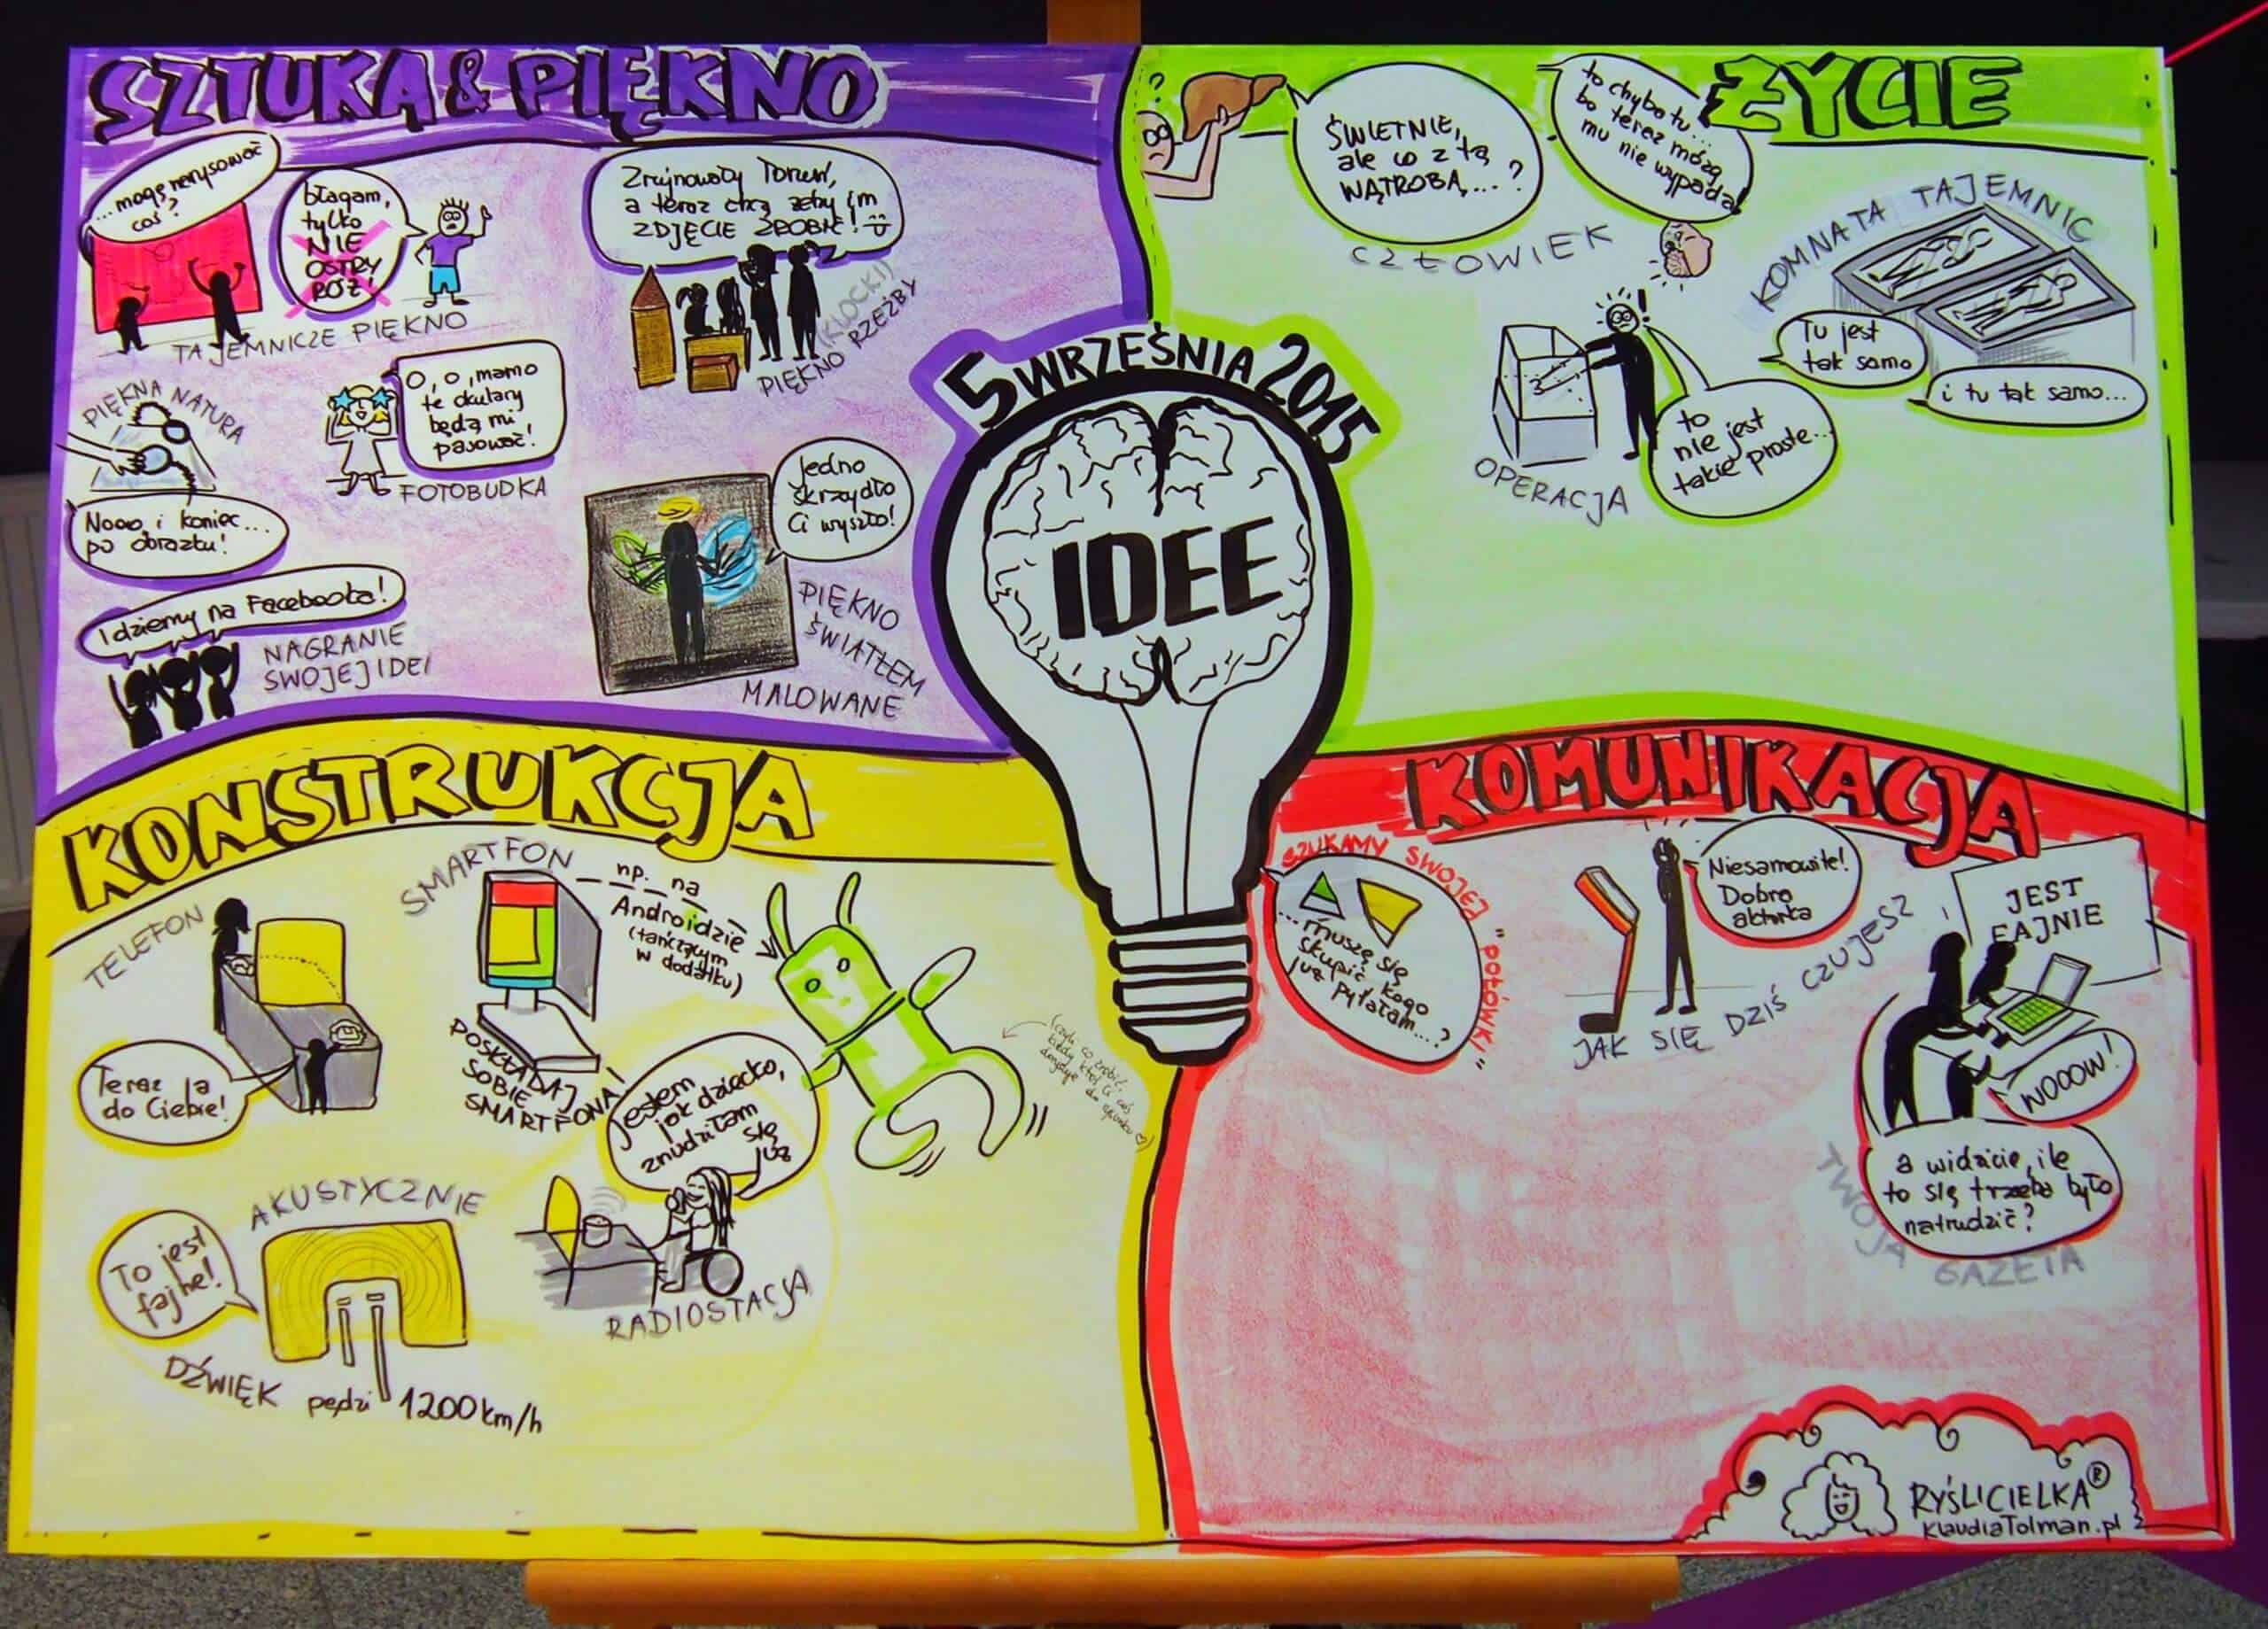 SZTUKA & PIĘKNO
...mogę narysować
coś?
błagam,
tylko
NIE
OSTRY
RÓŻ!
TAJEMNICZE PIĘKNO
Zrujnowały Toruń,
a teraz chcą żeby im
ZDJĘCIE ZROBIĆ!
(KLOCKI)
PIĘKNO RZEŹBY
PIĘKNA NATURA
Nooo i koniec...
po obrazku!
O, o, mamo
te okulary
będą mi
pasować!
FOTOBUDKA
Idziemy na Facebooka!
NAGRANIE
SWOJEJ IDEI
jedno
skrzydło
Ci wyszło!
PIĘKNO
ŚWIATŁEM
MALOWANE
5 WRZEŚNIA 2015
IDEE
ŻYCIE
?
ŚWIETNIE,
ale co z tą
WĄTROBĄ...?
to chyba tu...
bo teraz mózg
mu nie wypada!
CZŁOWIEK
KOMNATA TAJEMNIC
Tu jest
tak samo
i tu tak samo...
!
to
nie jest
takie proste...
OPERACJA
KONSTRUKCJA
TELEFON
Teraz ja
do Ciebie!
SMARTFON
np. na
Androidzie
(tańczącym
w dodatku)
POSKŁADAJ
SOBIE
SMARTFONA
jestem
jak dziecko,
znudziłam
się
już
RADIOSTACJA
AKUSTYCZNIE
To jest
fajne!
DŹWIĘK pędzi 1200 km/h
KOMUNIKACJA
SZUKAMY SWOJEJ "POŁÓWKI"
...muszę się
skupić kogo
już pytałam...?
Niesamowite!
Dobra
aktorka
JAK SIĘ DZIŚ CZUJESZ
JEST
FAJNIE
WOOOW!
a widzicie, ile
to się trzeba było
natrudzić?
TWOJA GAZETA
RYŚLICIELKA®
KlaudiaTolman.pl